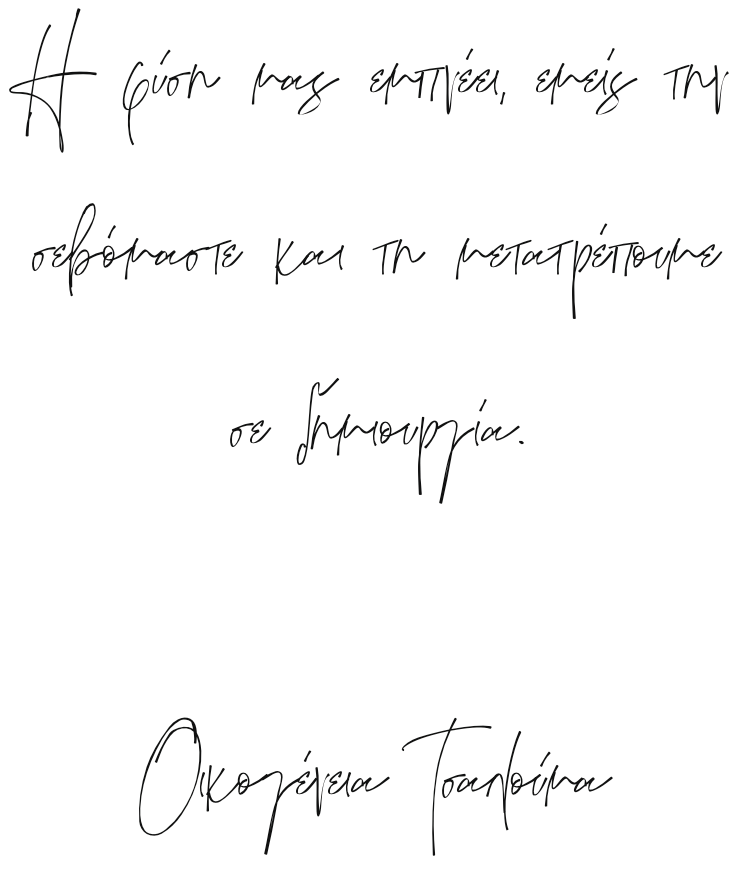 Η φύση μας εμπνέει, εμείς την
σεβόμαστε και τη μετατρέπουμε
σε δημιουργία.
Οικογένεια Τσαλούμα